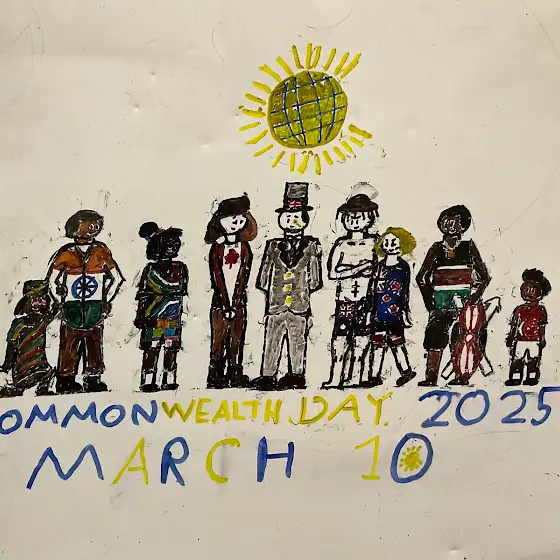 OMMONWEALTH DAY. 2025
MARCH 10